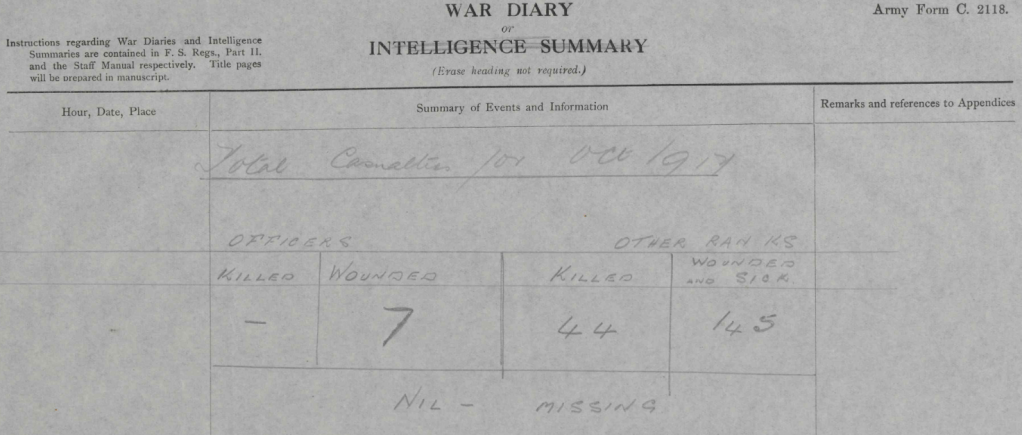 WAR DIARY
Army Form C. 2118.
or
INTELLIGENCE SUMMARY
(Erase heading not required.)
Instructions regarding War Diaries and Intelligence
Summaries are contained in F. S. Regs., Part II.
and the Staff Manual respectively. Title pages
will be prepared in manuscript.
Hour, Date, Place
Summary of Events and Information
Remarks and references to Appendices
Total Casualties for Oct 1917
OFFICERS
OTHER RANKS
KILLED
WOUNDED
KILLED
WOUNDED
AND SICK
-
7
44
145
NIL - MISSING